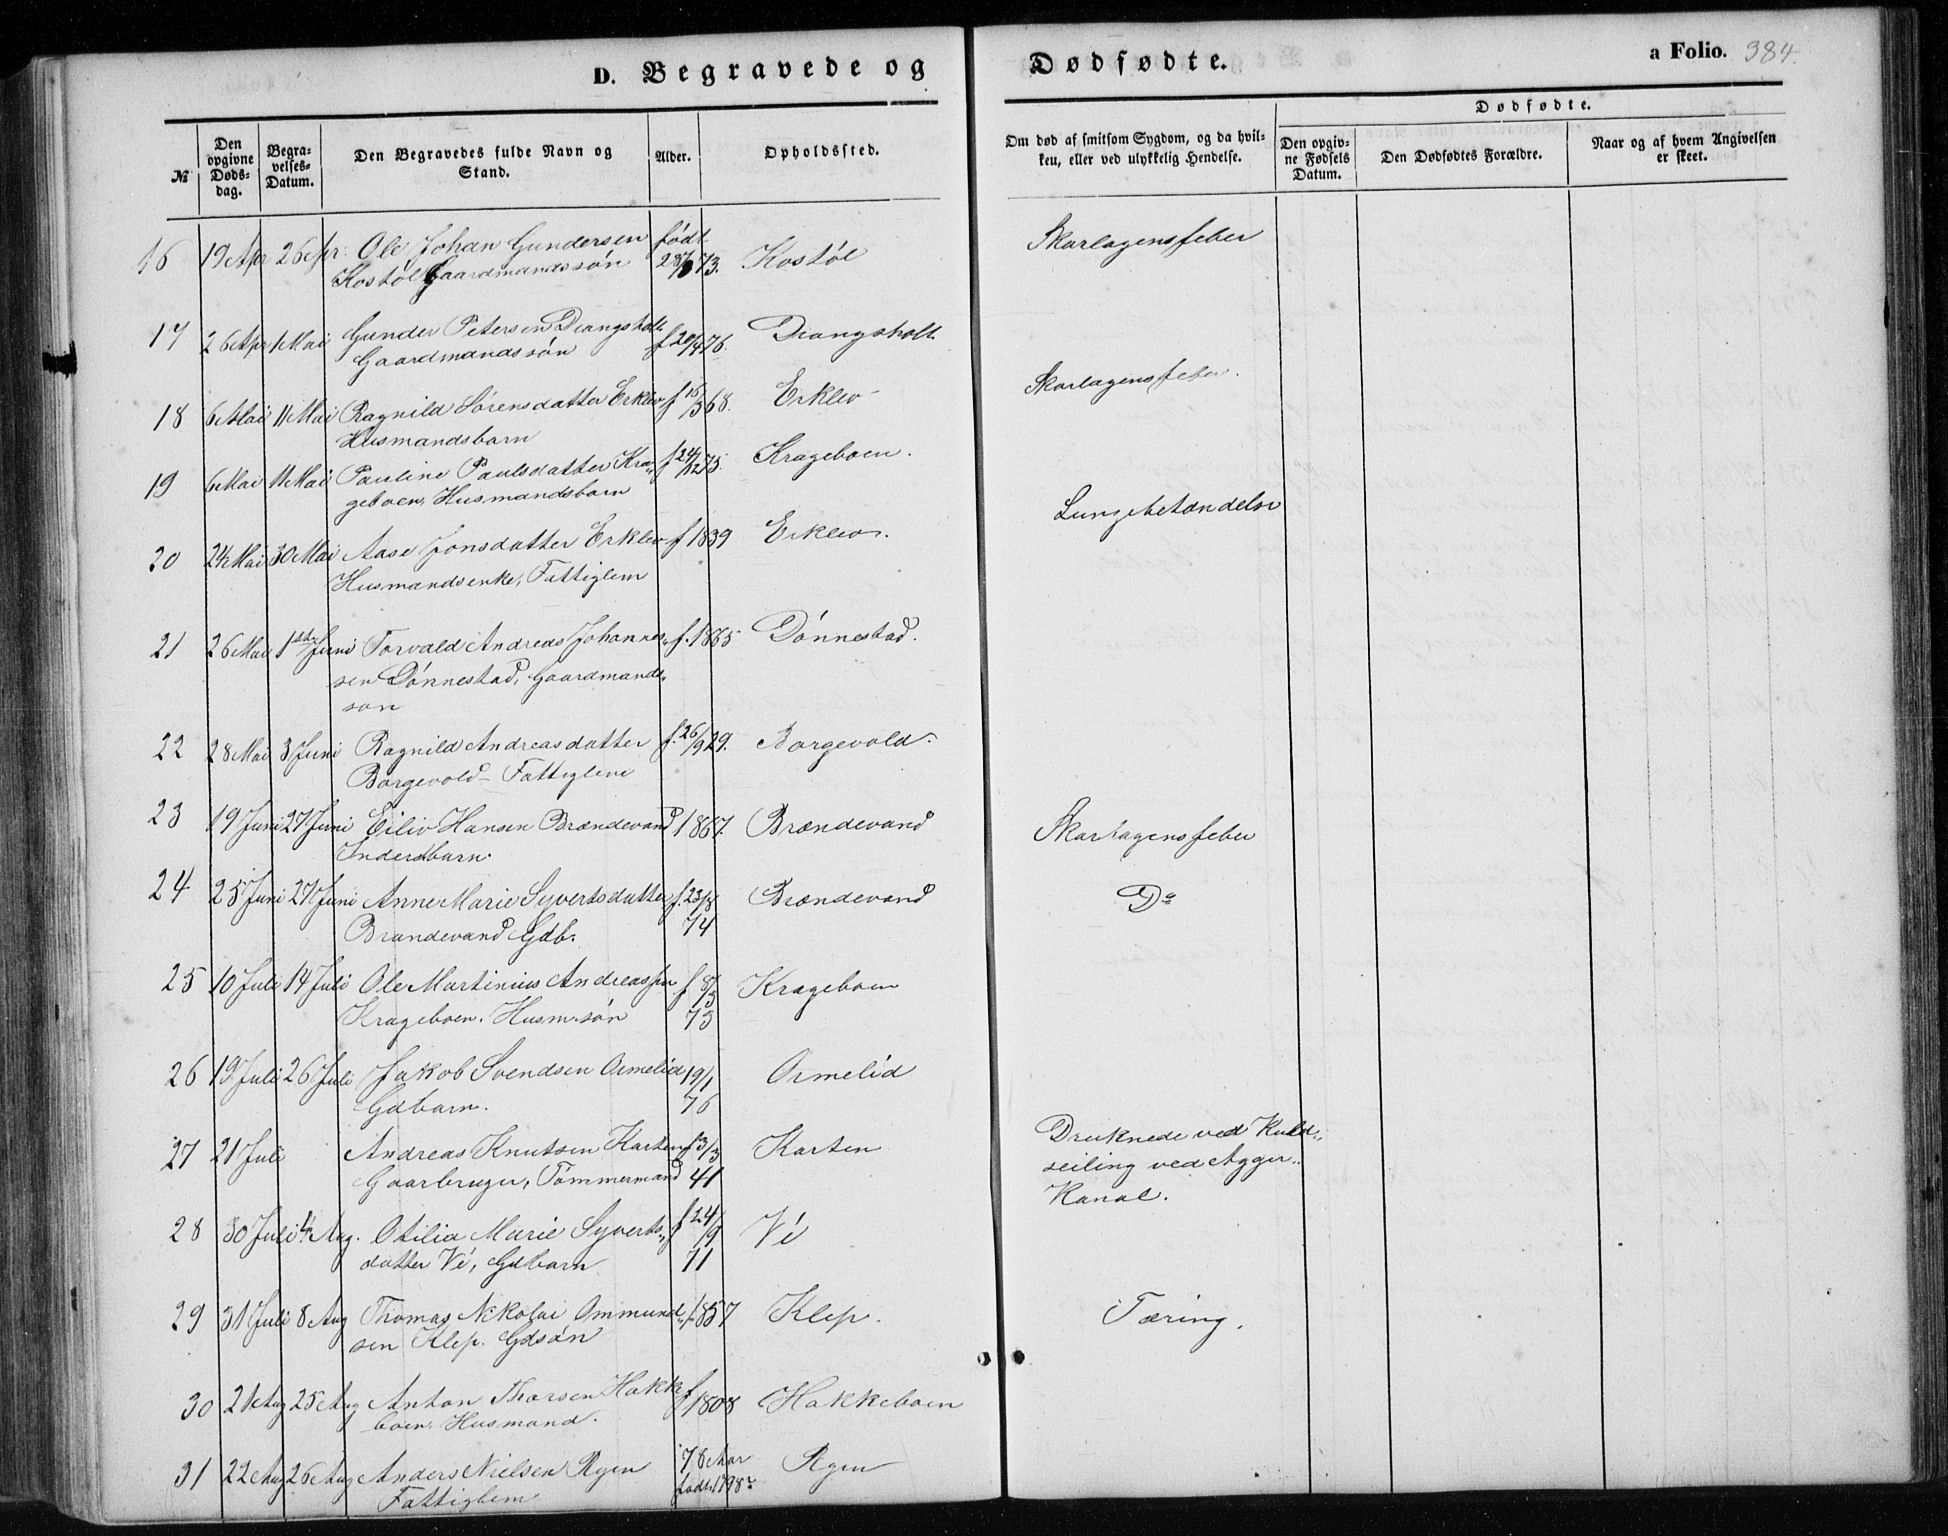 D. Begravede og
Dødfødte.
a Folio. 384.
№
Den opgivne Døds-dag.
Begra-velses-Datum.
Den Begravedes fulde Navn og Stand.
Alder.
Opholdssted.
Om død af smitsom Sygdom, og da hvil-ken, eller ved ulykkelig Hendelse.
Dødfødte.
Den opgiv-ne Fødsels Datum.
Den Dødfødtes Forældre.
Naar og af hvem Angivelsen er skeet.
16 19 Apr 26 Apr. Ole Johan Gundersen født Kostøl Skarlagensfeber
Kostøl Gaardmandssøn 73.
17 26 Apr 1 Mai Gunder Petersen Drangsholt f 20/4 76. Drangsholt
Gaardmandssøn
18 6 Mai 11 Mai Ragnild Sørensdatter Erklev f 16/3 68. Erklev Skarlagensfeber.
Husmandsbarn
19 6 Mai 11 Mai Pauline Paulsdatter Kra- f 24/12 75. Krageboen.
geboen, Husmandsbarn
20 24 Mai 30 Mai Aase Jonsdatter Erklev f 1839 Erklev. Lungebetændelse
Husmandsenke, Fattiglem
21 26 Mai 1ste Juni Torvald Andreas Johannes- f. 1865 Dønnestad.
sen Dønnestad, Gaardmands-
søn
22 28 Mai 3 Juni Ragnild Andreasdatter f. 26/9 29. Borgevold.
Borgevold – Fattiglem
23 19 Juni 27 Juni Eiliv Hansen Brændevand 1867. Brændevand Skarlagensfeber
Inderstbarn.
24 25 Juni 27 Juni Anne Marie Syvertsdatter f. 23/8 Brændevand Do
Brændevand Gdb. 74
25 10 Juli 14 Juli Ole Martinius Andreassen f 8/5 Krageboen
Krageboen. Husm.søn 75
26 19 Juli 26 Juli Jakob Svendsen Ormelid 19/1 Ormelid
Gdbarn. 76
27 21 Juli Andreas Knutsen Karten f 3/3 Karten Druknede ved Kuld-
Gaarbruger, Tømmermand 41 seiling ved Agger-
Kanal.
28 30 Juli 4 Aug. Otilia Marie Syverts- f 24/9 Vé
datter Vé, Gdbarn 71
29 31 Juli 8 Aug Thomas Nikolai Ommund- f. 1857 Klep. Tæring.
sen Klep. Gdsøn
30 21 Aug 25 Aug Anton Thorsen Hakke f 1808 Hakkeboen
boen. Husmand.
31 22 Aug 26 Aug Anders Nielsen Rygen 78 Aar
Fattiglem født 1798